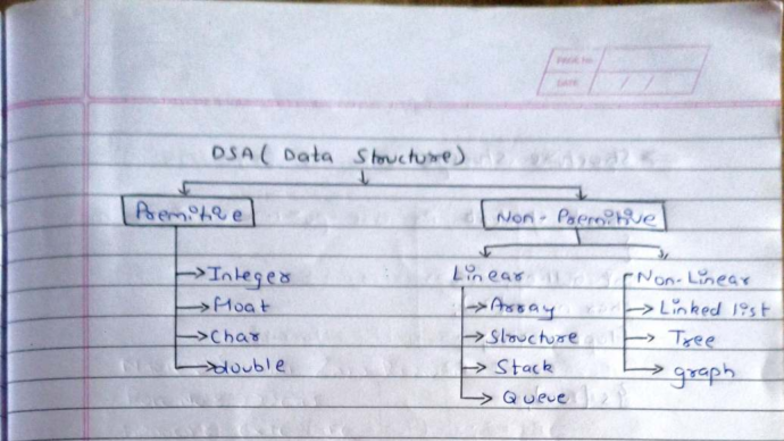 PAGE No.
DATE / /
DSA ( Data Structure)
Premitive
Non-Premitive
Integer
float
Char
double
Linear
Array
Structure
Stack
Queue
Non-Linear
Linked list
Tree
graph